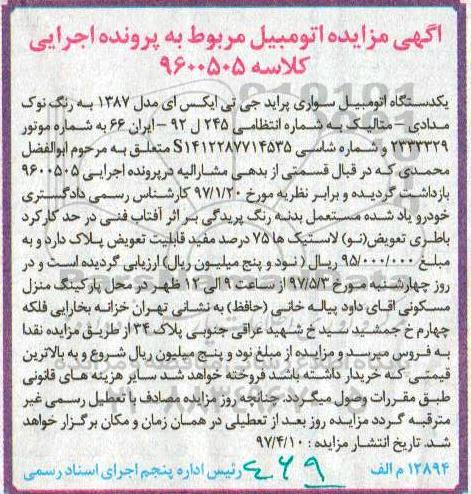 اگهی مزایده اتومبیل مربوط به پرونده اجرایی
کلاسه ۹۶۰۰۵۰۵
یکدستگاه اتومبیل سواری پراید جی تی ایکس ای مدل ۱۳۸۷ به رنگ نوک
مدادی – متالیک به شماره انتظامی ۲۴۵ ل ۹۲ – ایران ۶۶ به شماره موتور
۲۳۳۳۳۲۹ و شماره شاسی S۱۴۱۲۲۸۷۷۱۴۵۳۵ متعلق به مرحوم ابوالفضل
محمدی که در قبال قسمتی از بدهی مشارالیه درپرونده اجرایی ۹۶۰۰۵۰۵
بازداشت گردیده و برابر نظریه مورخ ۹۷/۱/۲۰ کارشناس رسمی دادگستری
خودرو یاد شده مستعمل بدنه رنگ پریدگی بر اثر آفتاب فنی در حد کارکرد
باطری تعویض(نو) لاستیک ها ۷۵ درصد مفید قابلیت تعویض پلاک دارد و به
مبلغ ۹۵/۰۰۰/۰۰۰ ریال (نود و پنج میلیون ریال) ارزیابی گردیده است و در
روز چهارشنبه مورخ ۹۷/۵/۳ از ساعت ۹ الی ۱۲ ظهر در محل پارکینگ منزل
مسکونی اقای داود پیاله خانی (حافظ) به نشانی تهران خزانه بخارایی فلکه
چهارم خ جمشید سید خ شهید عراقی جنوبی پلاک ۳۴ از طریق مزایده نقدا
به فروس میرسد و مزایده از مبلغ نود و پنج میلیون ریال شروع و به بالاترین
قیمتی که خریدار داشته باشد فروخته خواهد شد سایر هزینه های قانونی
طبق مقررات وصول میگردد. چنانچه روز مزایده مصادف با تعطیل رسمی غیر
مترقبه گردد مزایده روز بعد از تعطیلی در همان زمان و مکان برگزار خواهد
شد. تاریخ انتشار مزایده : ۹۷/۴/۱۰
۱۲۸۹۴ م الف ۴۶۹ رئیس اداره پنجم اجرای اسناد رسمی